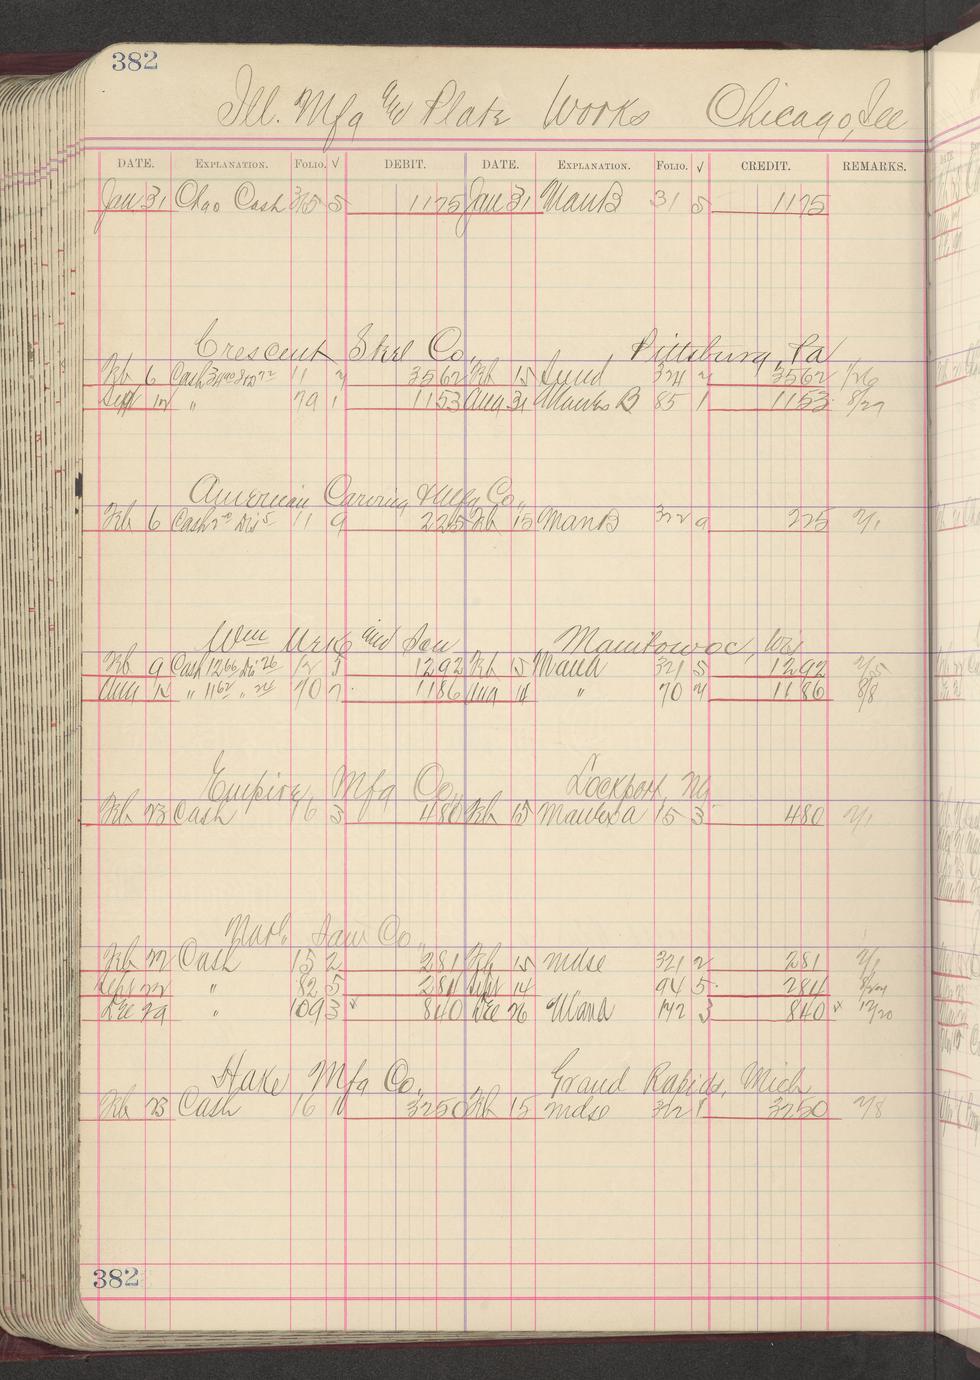 382
Ill. Mfg and Plate Works Chicago, Ill
DATE. EXPLANATION. FOLIO. √ DEBIT. DATE. EXPLANATION. FOLIO. √ CREDIT. REMARKS.
Jan 31 Chgo Cash 315 5 1175 Jan 31 ManB 31 5 1175
Crescent Steel Co. Pittsburg, Pa
Feb 6 Cash 11 3562 Feb 15 Sund 324 3562 1/26
Sept 12 " 79 1 1153 Aug 31 B 85 1 1153 8/27
American Carving & Mfg Co.,
Feb 6 Cash 11 9 225 Feb 15 ManB 322 9 225 2/1
Wm and Son Manitowoc, Wis
Feb 9 Cash 12 66 Dis 26 12 5 1292 Feb 15 321 5 1292 2/5
Aug 12 " 11 62 " 24 70 2 1186 Aug 11 " 70 2 1186 8/8
Empire Mfg Co., Lockport, Ny
Feb 23 Cash 16 3 480 Feb 15 15 3 480 2/1
Saw Co.,
Feb 22 Cash 15 2 281 Feb 15 mdse 321 2 281 2/1
Sept 22 " 82 5 284 Sept 14 94 5 284
Dec 29 " 109 3 840 Dec 26 142 3 840 12/20
Hake Mfg Co. Grand Rapids, Mich
Feb 23 Cash 16 3250 Feb 15 mdse 321 3250 2/8
382